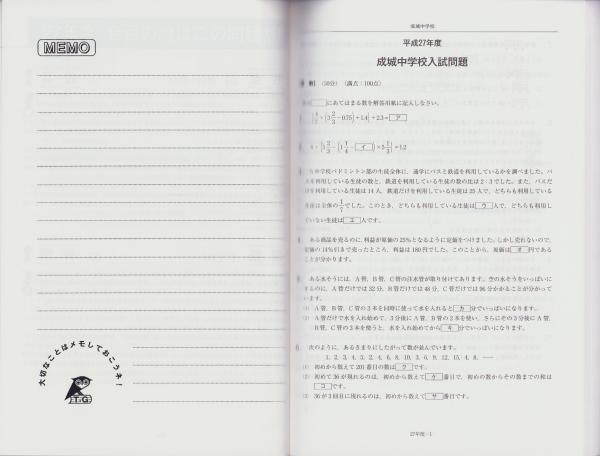 MEMO
大切なことはメモしておこうネ!
成城中学校
平成27年度
成城中学校入試問題
(50分) (満点:100点)
にあてはまる数を解答用紙に記入しなさい。
+2.3= ア
イ
=1.2
中学校バドミントン部の生徒全体に、通学にバスと鉄道を利用しているかを調べました。バ
スを利用している生徒の数と、鉄道を利用している生徒の数の比は2:3でした。また、バスだ
けを利用している生徒は14人、鉄道だけを利用している生徒は25人で、どちらも利用している
生徒は全体の 1/5 でした。このとき、どちらも利用している生徒は ウ 人で、どちらも利用し
ていない生徒は エ 人です。
ある商品を売るのに、利益が原価の25%となるように定価をつけました。しかし売れないので、
定価の14%引きで売ったところ、利益は180円でした。このことから、原価は オ 円である
ことが分かります。
ある水そうには、A管、B管、C管の注水管が取り付けてあります。空の水そうをいっぱいに
するのに、A管だけでは32分、B管だけでは48分、C管だけでは96分かかることが分かって
います。
(1) A管、B管、C管の3本を同時に使って水を入れると カ 分でいっぱいになります。
(2) A管だけで水を入れ始めて、3分後にA管、B管の2本を使い、さらにその3分後にA管、
B管、C管の3本を使うと、水を入れ始めてから キ 分でいっぱいになります。
次のように、あるきまりにしたがって数が並んでいます。
1, 2, 3, 4, 5, 2, 4, 6, 8, 10, 3, 6, 9, 12, 15, 4, 8, ……
(1) 初めから数えて201番目の数は ク です。
(2) 初めて36が現れるのは、初めから数えて ケ 番目で、初めの数からその数までの和は
コ です。
(3) 36が3回目に現れるのは、初めから数えて サ 番目です。
27年度-1